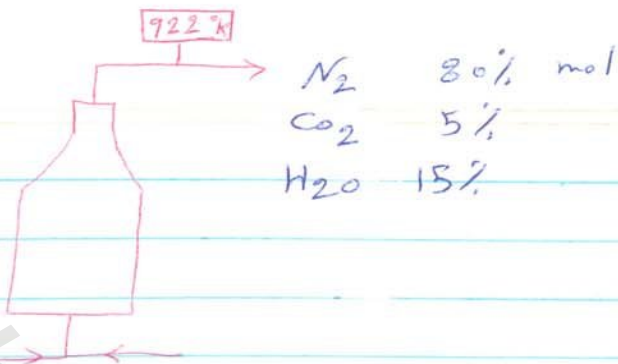 922 °K
N2 80% mol
CO2 5%
H2O 15%